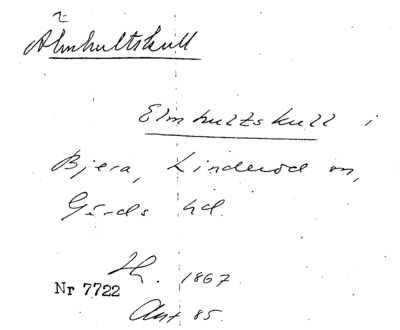 Älmhultskull
Elmhultskull i
Bjera, Linderöd sn,
Gärds hd.
1867
Nr 7722
Ant 85.